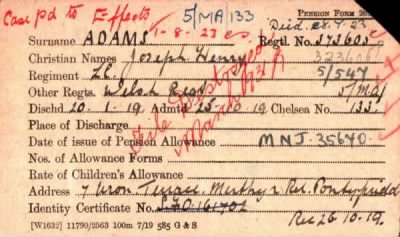 Case pd to Effects 5/MA/133 PENSION FORM 20
1-8-23 Died 28.7.23
Surname ADAMS Regtl. No. 373605
Christian Names Joseph Henry
Regiment L.C. 5/547
Other Regts. Welsh Regt 5/MA/
Dischd 20.1.19 Admtd 25.10.19 Chelsea No. 133
File Destroyed
Place of Discharge
Date of issue of Pension Allowance MNJ.35640
Nos. of Allowance Forms
Rate of Children's Allowance
Address 7 Terrace Merthyr Rd. Pontypridd
Identity Certificate No.
Rec 26.10.19.
[W1632] 11790/2563 100m 7/19 585 G & S